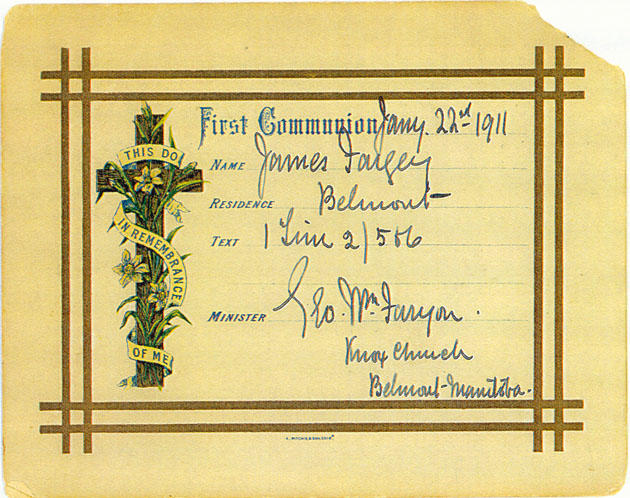 First Communion Jany. 22nd 1911
THIS DO
IN REMEMBRANCE
OF ME
NAME James Fargey
RESIDENCE Belmont
TEXT 1 Tim 2/5&6
MINISTER Geo. Wm Faryon.
Knox Church
Belmont-Manitoba.